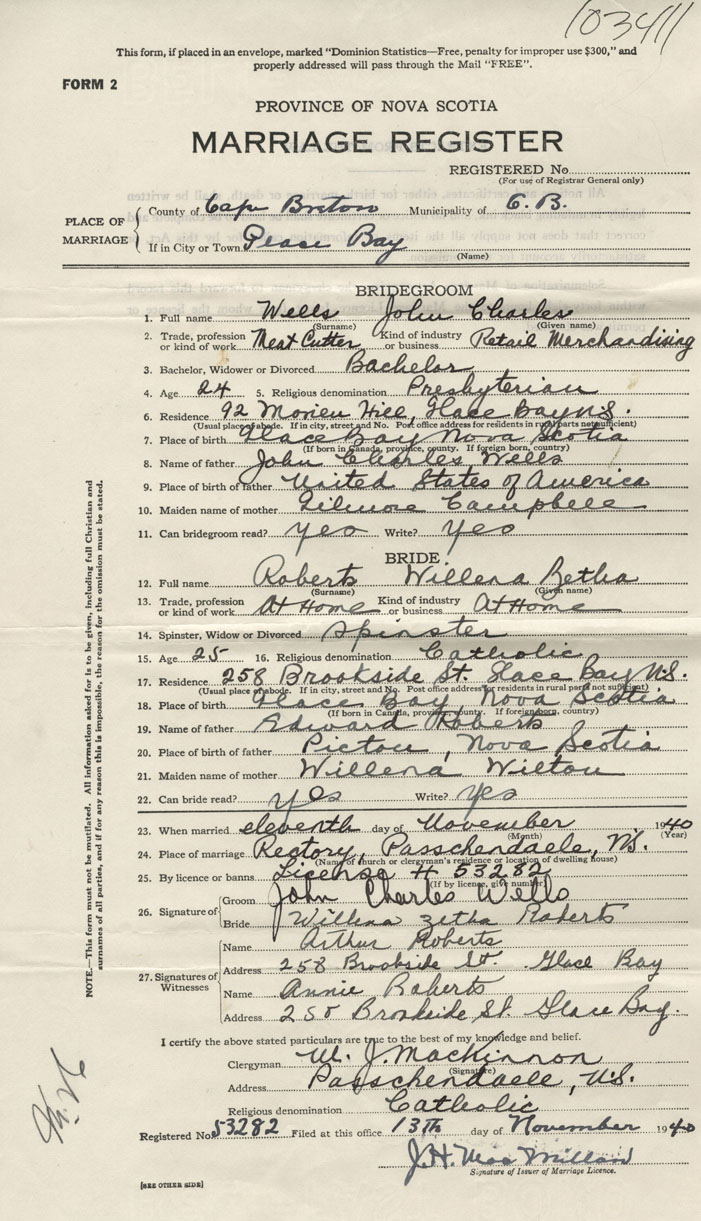 103411
This form, if placed in an envelope, marked "Dominion Statistics—Free, penalty for improper use $300," and
properly addressed will pass through the Mail "FREE".
FORM 2
PROVINCE OF NOVA SCOTIA
MARRIAGE REGISTER
REGISTERED No.
(For use of Registrar General only)
PLACE OF MARRIAGE
County of Cape Breton Municipality of C. B.
If in City or Town Glace Bay
(Name)
BRIDEGROOM
1. Full name Wells John Charles
(Surname) (Given name)
2. Trade, profession or kind of work Meat Cutter Kind of industry or business Retail Merchandising
3. Bachelor, Widower or Divorced Bachelor
4. Age 24 5. Religious denomination Presbyterian
6. Residence 92 Morien Hill, Glace Bay N.S.
(Usual place of abode. If in city, street and No. Post office address for residents in rural parts not sufficient)
7. Place of birth Glace Bay Nova Scotia
(If born in Canada, province, county. If foreign born, country)
8. Name of father John Charles Wells
9. Place of birth of father United States of America
10. Maiden name of mother Gilmore Campbell
11. Can bridegroom read? yes Write? yes
BRIDE
12. Full name Roberts Willena Zetha
(Surname) (Given name)
13. Trade, profession or kind of work At Home Kind of industry or business At Home
14. Spinster, Widow or Divorced Spinster
15. Age 25 16. Religious denomination Catholic
17. Residence 258 Brookside St. Glace Bay N.S.
(Usual place of abode. If in city, street and No. Post office address for residents in rural parts not sufficient)
18. Place of birth Glace Bay Nova Scotia
(If born in Canada, province, county. If foreign born, country)
19. Name of father Edward Roberts
20. Place of birth of father Pictou, Nova Scotia
21. Maiden name of mother Willena Wilton
22. Can bride read? yes Write? yes
23. When married eleventh day of November 1940
(Month) (Year)
24. Place of marriage Rectory, Passchendaele, N.S.
(Name of church or clergyman's residence or location of dwelling house)
25. By licence or banns License # 53282
(If by licence, give number)
26. Signature of Groom John Charles Wells
Bride Willena Zetha Roberts
27. Signatures of Witnesses
Name Arthur Roberts
Address 258 Brookside St. Glace Bay
Name Annie Roberts
Address 258 Brookside St. Glace Bay.
I certify the above stated particulars are true to the best of my knowledge and belief.
Clergyman W. J. MacKinnon
(Signature)
Address Passchendaele, N.S.
Religious denomination Catholic
Registered No. 53282 Filed at this office 13th day of November 1940
J. H. MacMillan
Signature of Issuer of Marriage Licence.
[SEE OTHER SIDE]
NOTE.—This form must not be mutilated. All information asked for is to be given, including full Christian and
surnames of all parties, and if for any reason this is impossible, the reason for the omission must be stated.